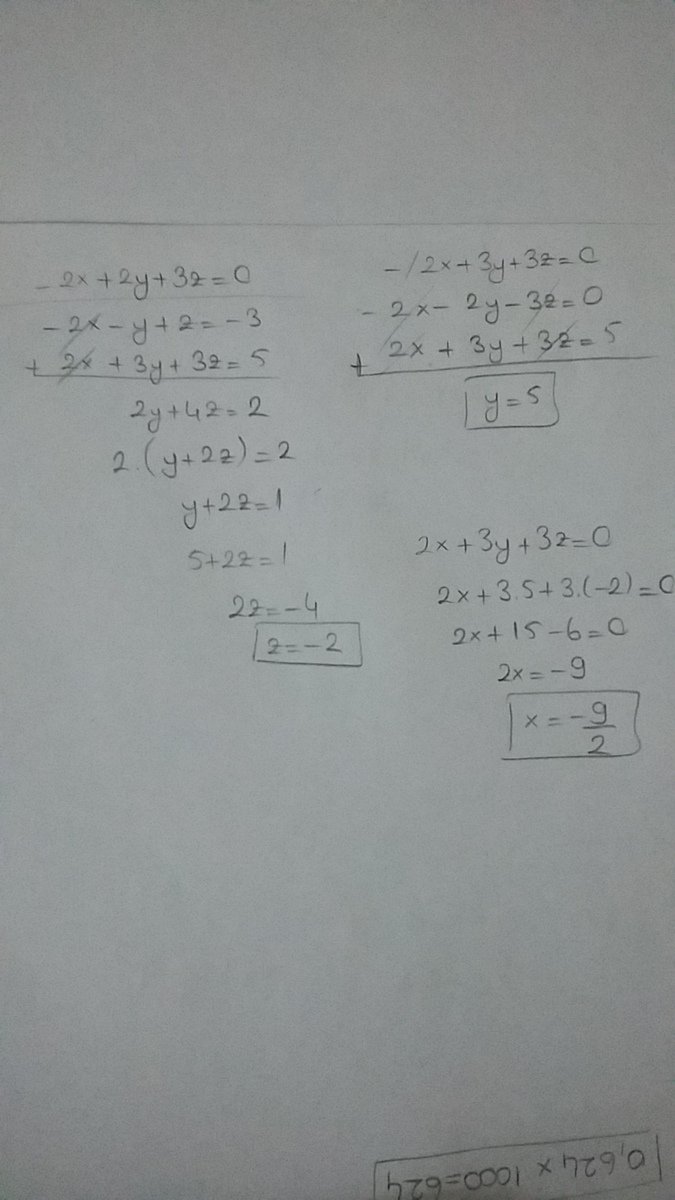 - 2x+2y+3z=0
- 2x-y+z=-3
+ 2x+3y+3z=5
2y+4z=2
2.(y+2z)=2
y+2z=1
5+2z=1
2z=-4
z=-2
-/2x+3y+3z=0
- 2x-2y-3z=0
+ 2x+3y+3z=5
y=5
2x+3y+3z=0
2x+3.5+3.(-2)=0
2x+15-6=0
2x=-9
x=-9/2
0,624 x 1000=624